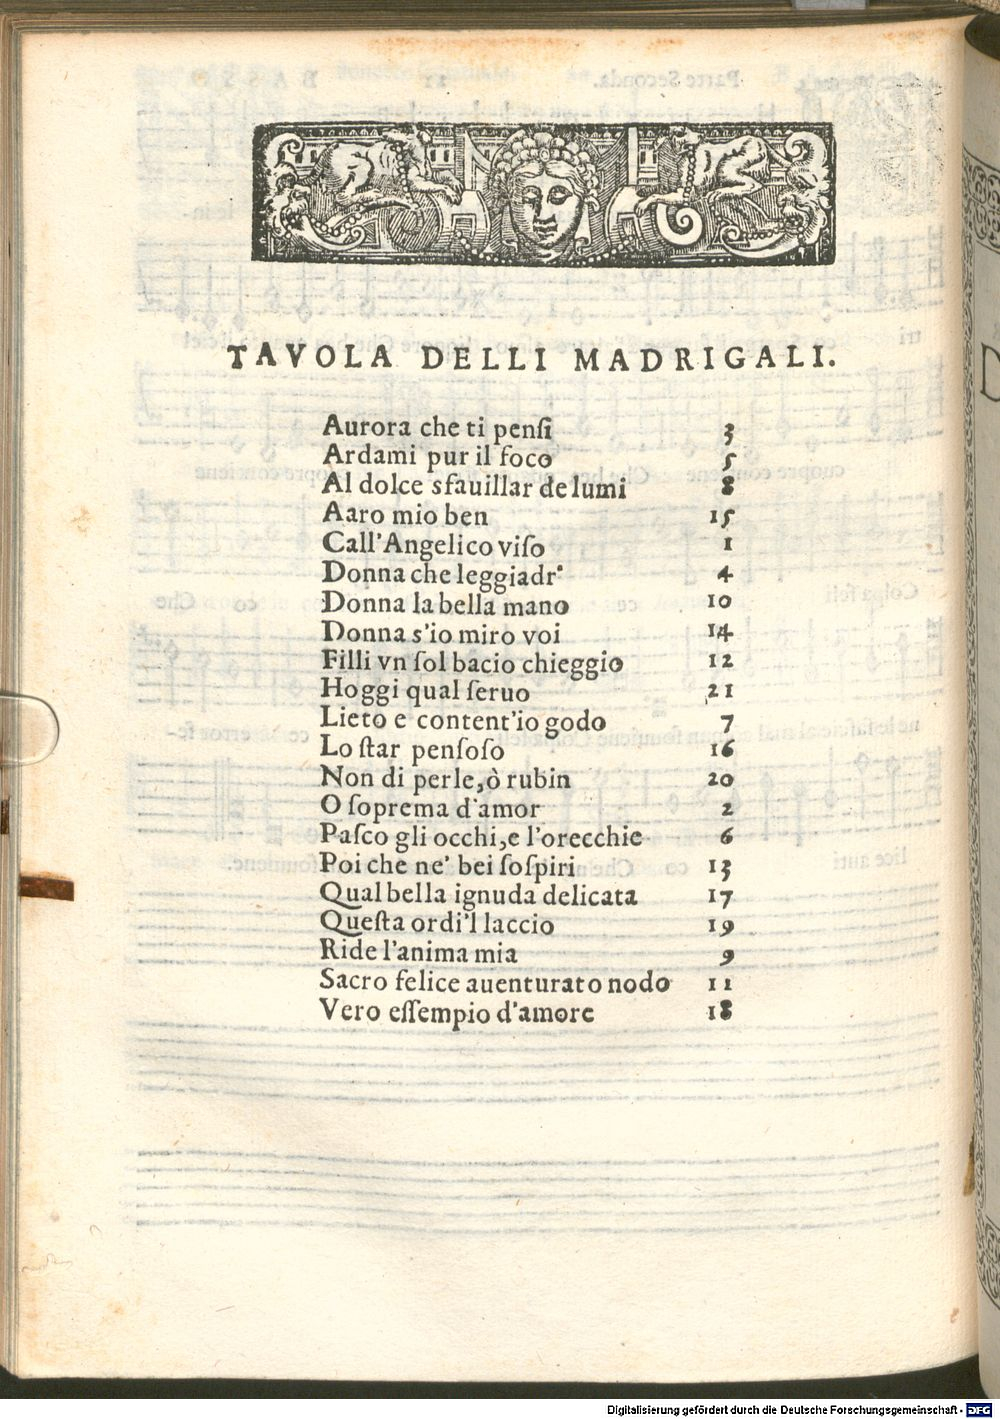 TAVOLA DELLI MADRIGALI.
Aurora che ti penſi 3
Ardami pur il foco 5
Al dolce sfauillar de lumi 8
Aaro mio ben 15
Call'Angelico viſo 1
Donna che leggiadr' 4
Donna la bella mano 10
Donna s'io miro voi 14
Filli vn ſol bacio chieggio 12
Hoggi qual ſeruo 21
Lieto e content'io godo 7
Lo ſtar penſoſo 16
Non di perle,ò rubin 20
O ſoprema d'amor 2
Paſco gli occhi,e l'orecchie 6
Poi che ne' bei ſoſpiri 13
Qual bella ignuda delicata 17
Queſta ordi'l laccio 19
Ride l'anima mia 9
Sacro felice auenturato nodo 11
Vero eſſempio d'amore 18
Digitalisierung gefördert durch die Deutsche Forschungsgemeinschaft - DFG